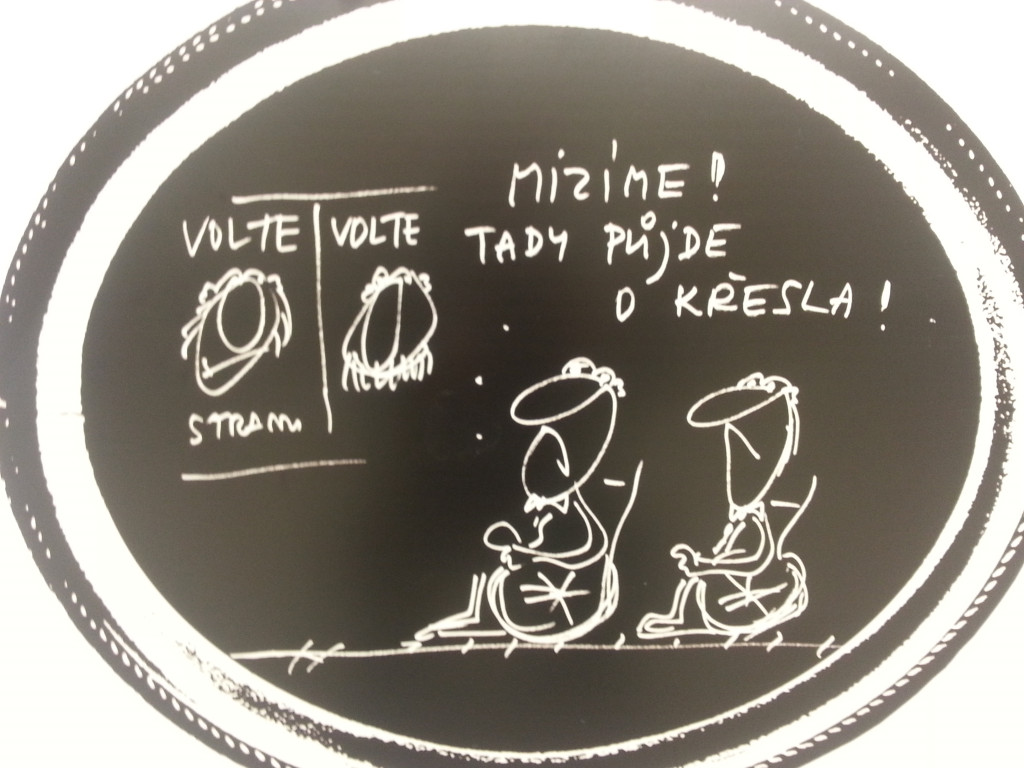 VOLTE
STRANU
VOLTE
MIZÍME!
TADY PŮJDE
O KŘESLA!